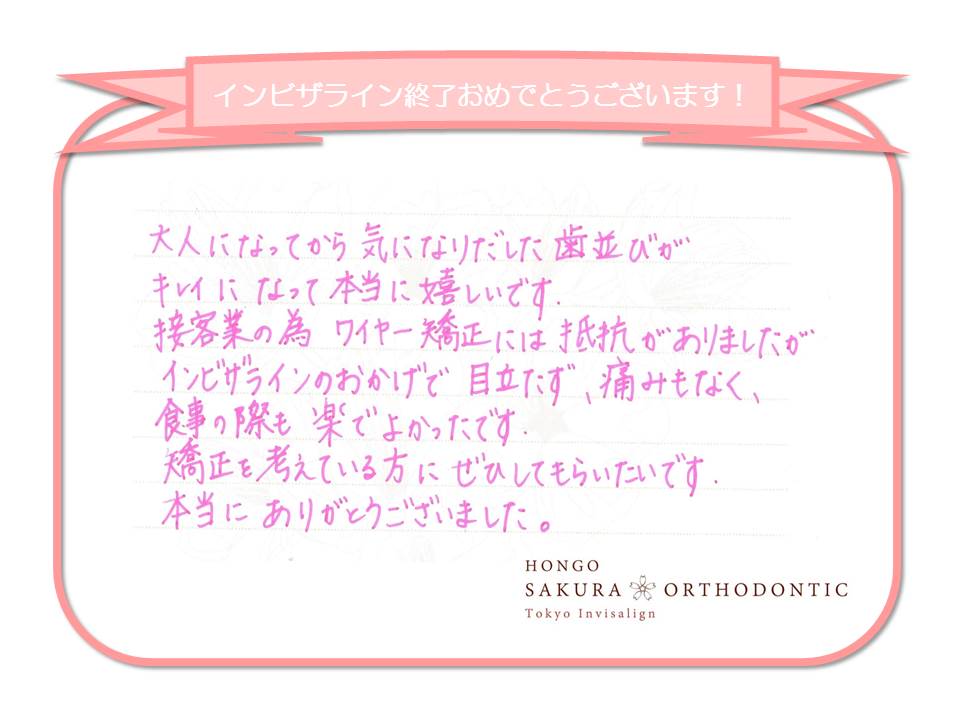 インビザライン終了おめでとうございます！
大人になってから 気になりだした 歯並びが
キレイに なって 本当に 嬉しいです.
接客業の為 ワイヤー矯正には 抵抗がありましたが
インビザラインのおかげで 目立たず、痛みもなく、
食事の際も 楽でよかったです.
矯正を考えている方に ぜひしてもらいたいです.
本当に ありがとうございました。
HONGO
SAKURA ORTHODONTIC
Tokyo Invisalign